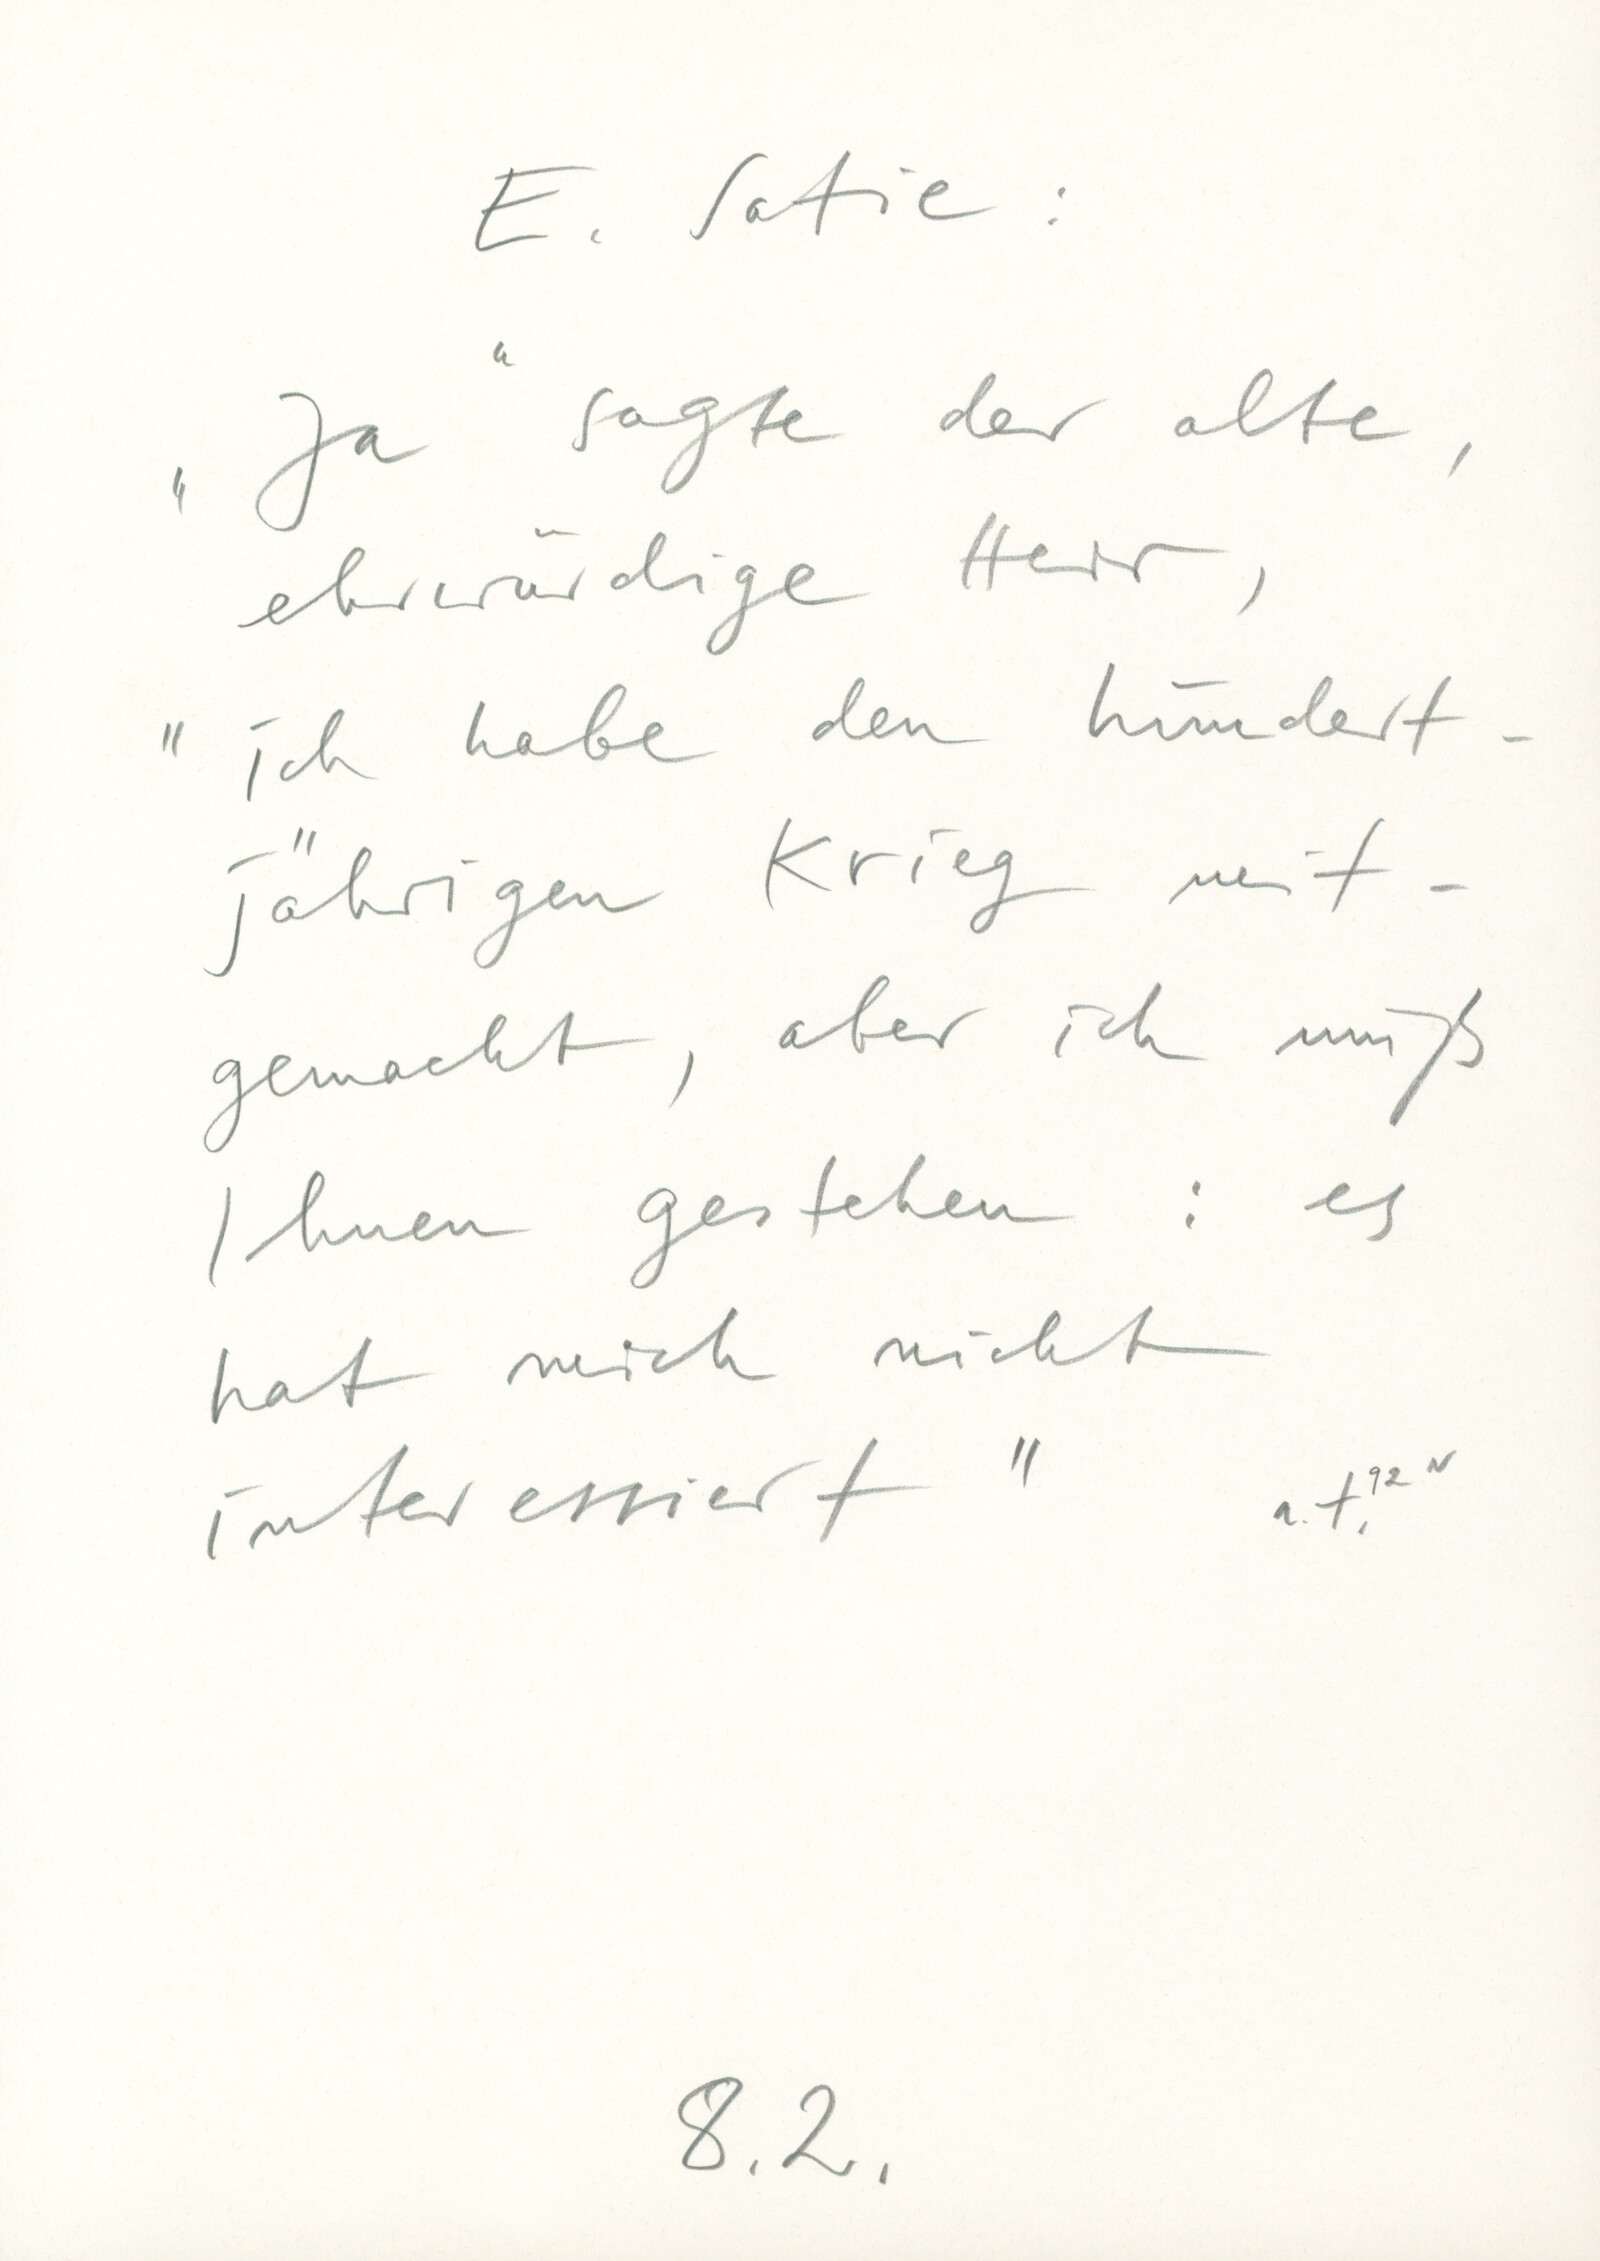 E. Satie :
„Ja“ sagte der alte,
ehrwürdige Herr,
"ich habe den hundert-
jährigen Krieg mit-
gemacht, aber ich muß
Ihnen gestehen : es
hat mich nicht
interessiert"
a.t. 92 N
8.2.